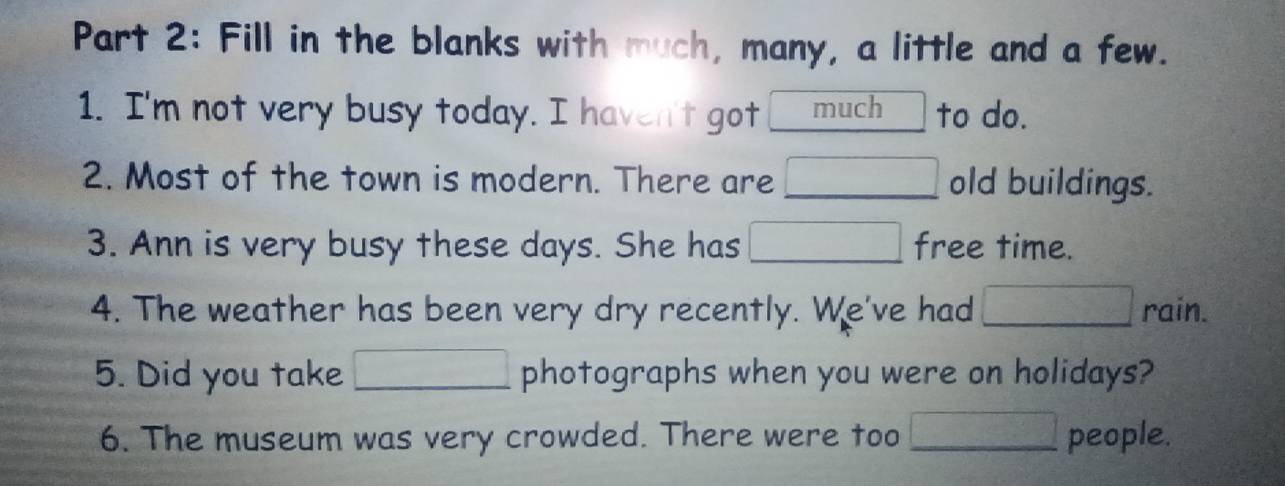 Part 2: Fill in the blanks with much, many, a little and a few.
1. I'm not very busy today. I haven't got much to do.
2. Most of the town is modern. There are old buildings.
3. Ann is very busy these days. She has free time.
4. The weather has been very dry recently. We've had rain.
5. Did you take photographs when you were on holidays?
6. The museum was very crowded. There were too people.